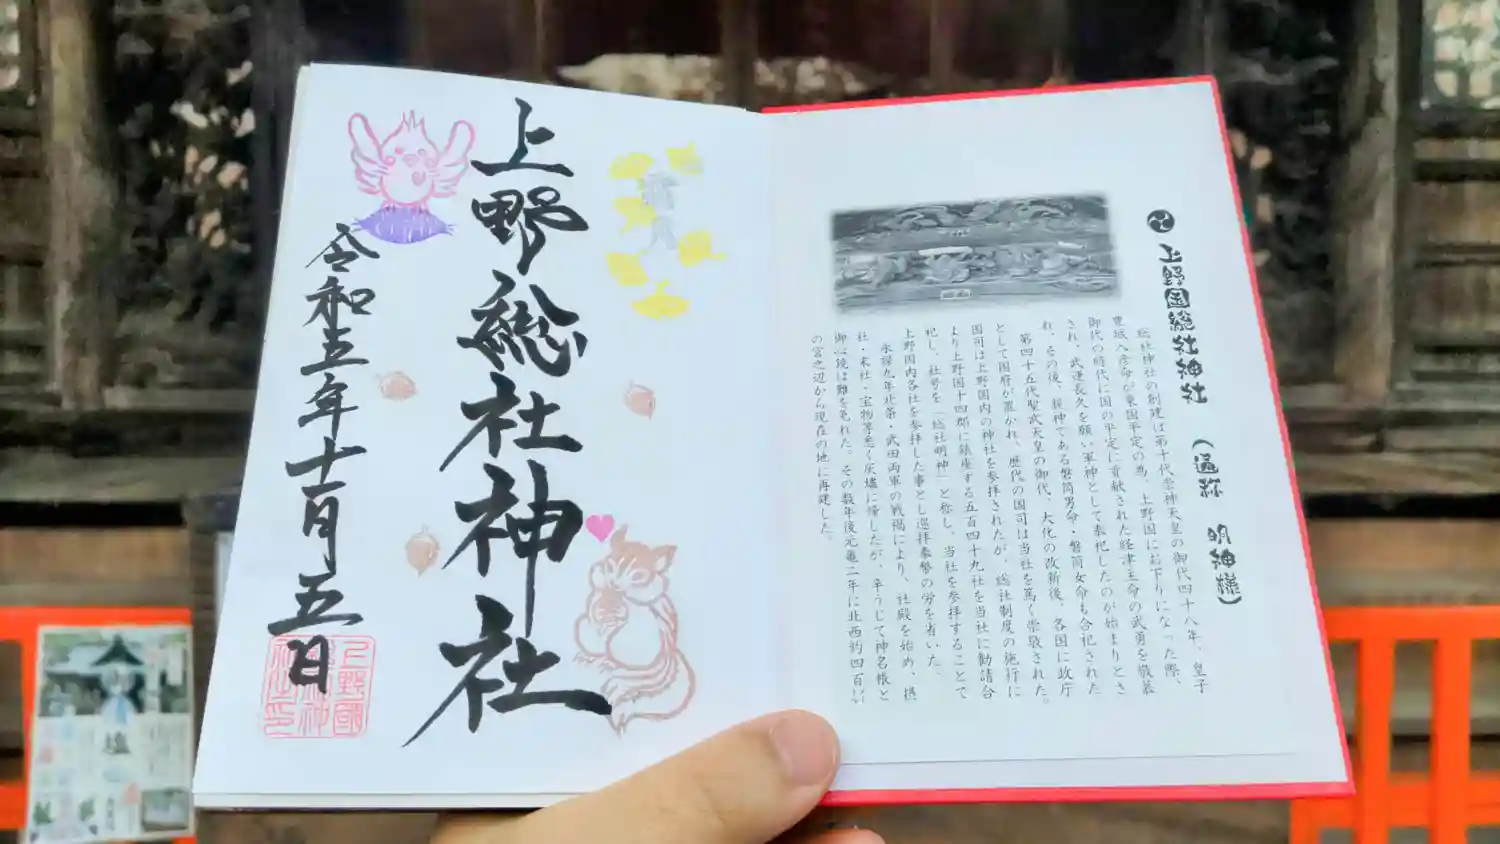 上野国総社神社 (通称 明神様)
総社神社の創建は第十代崇神天皇の御代四十八年、皇子
豊城入彦命が東国平定の為、上野国にお下りになった際、
御代の時代に国の平定に貢献された経津主命の武勇を敬慕
され、武運長久を願い軍神として奉祀したのが始まりとさ
れ、その後、親神である磐筒男命・磐筒女命も合祀された
第四十五代聖武天皇の御代、大化の改新後、各国に政庁
として国府が置かれ、歴代の国司は当社を篤く崇敬された。
国司は上野国内の神社を参拝されたが、総社制度の施行に
より上野国十四郡に鎮座する五百四十九社を当社に勧請合
祀し、社号を「総社明神」と称し、当社を参拝することで
上野国内各社を参拝した事とし巡拝奉幣の労を省いた。
永禄九年北条・武田両軍の戦禍により、社殿を始め、摂
社・末社・宝物等悉く灰燼に帰したが、辛うじて神名帳と
御心鏡は難を免れた。その数年後元亀二年に北西約四百㍍
の宮之辺から現在の地に再建した。
霜月
上野総社神社
令和五年十一月五日
上野國
総社神
社之印